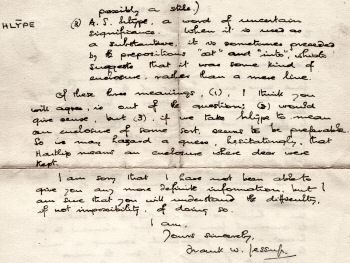 possibly a stile.)
HLȲPE
(3) A.S. hlȳpe, a word of uncertain
significance. When it is used as
a substantive, it is sometimes preceded
by the prepositions "at" and "into", which
suggests that it was some kind of
enclosure, rather than a mere line.
Of these three meanings, (1), I think you
will agree, is out of the question; (2) would
give sense, but (3), if we take hlȳpe to mean
an enclosure of some sort, seems to be preferable.
So we may hazard a guess, hesitatingly, that
Hartlip means an enclosure where deer were
kept.
I am sorry that I have not been able to
give you any more definite information, but I
am sure that you will understand the difficulty,
if not impossibility, of doing so.
I am,
Yours sincerely,
Frank W. Jessup.